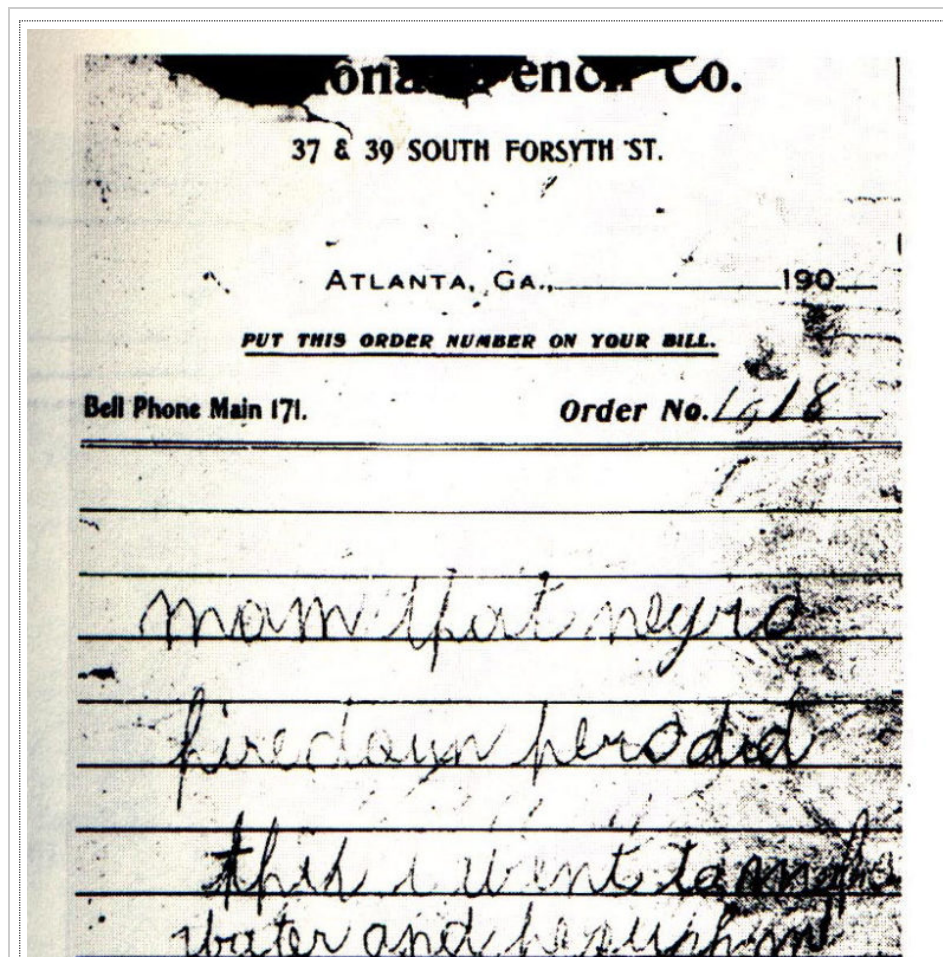 Co.
37 & 39 SOUTH FORSYTH ST.
ATLANTA, GA., 190
PUT THIS ORDER NUMBER ON YOUR BILL.
Bell Phone Main 171. Order No. 1018
mam that negro
hire down here did
this i went to make
water and he push me